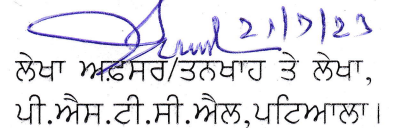 21/7/23
ਲੇਖਾ ਅਫ਼ਸਰ/ਤਨਖਾਹ ਤੇ ਲੇਖਾ,
ਪੀ.ਐਸ.ਟੀ.ਸੀ.ਐਲ,ਪਟਿਆਲਾ।